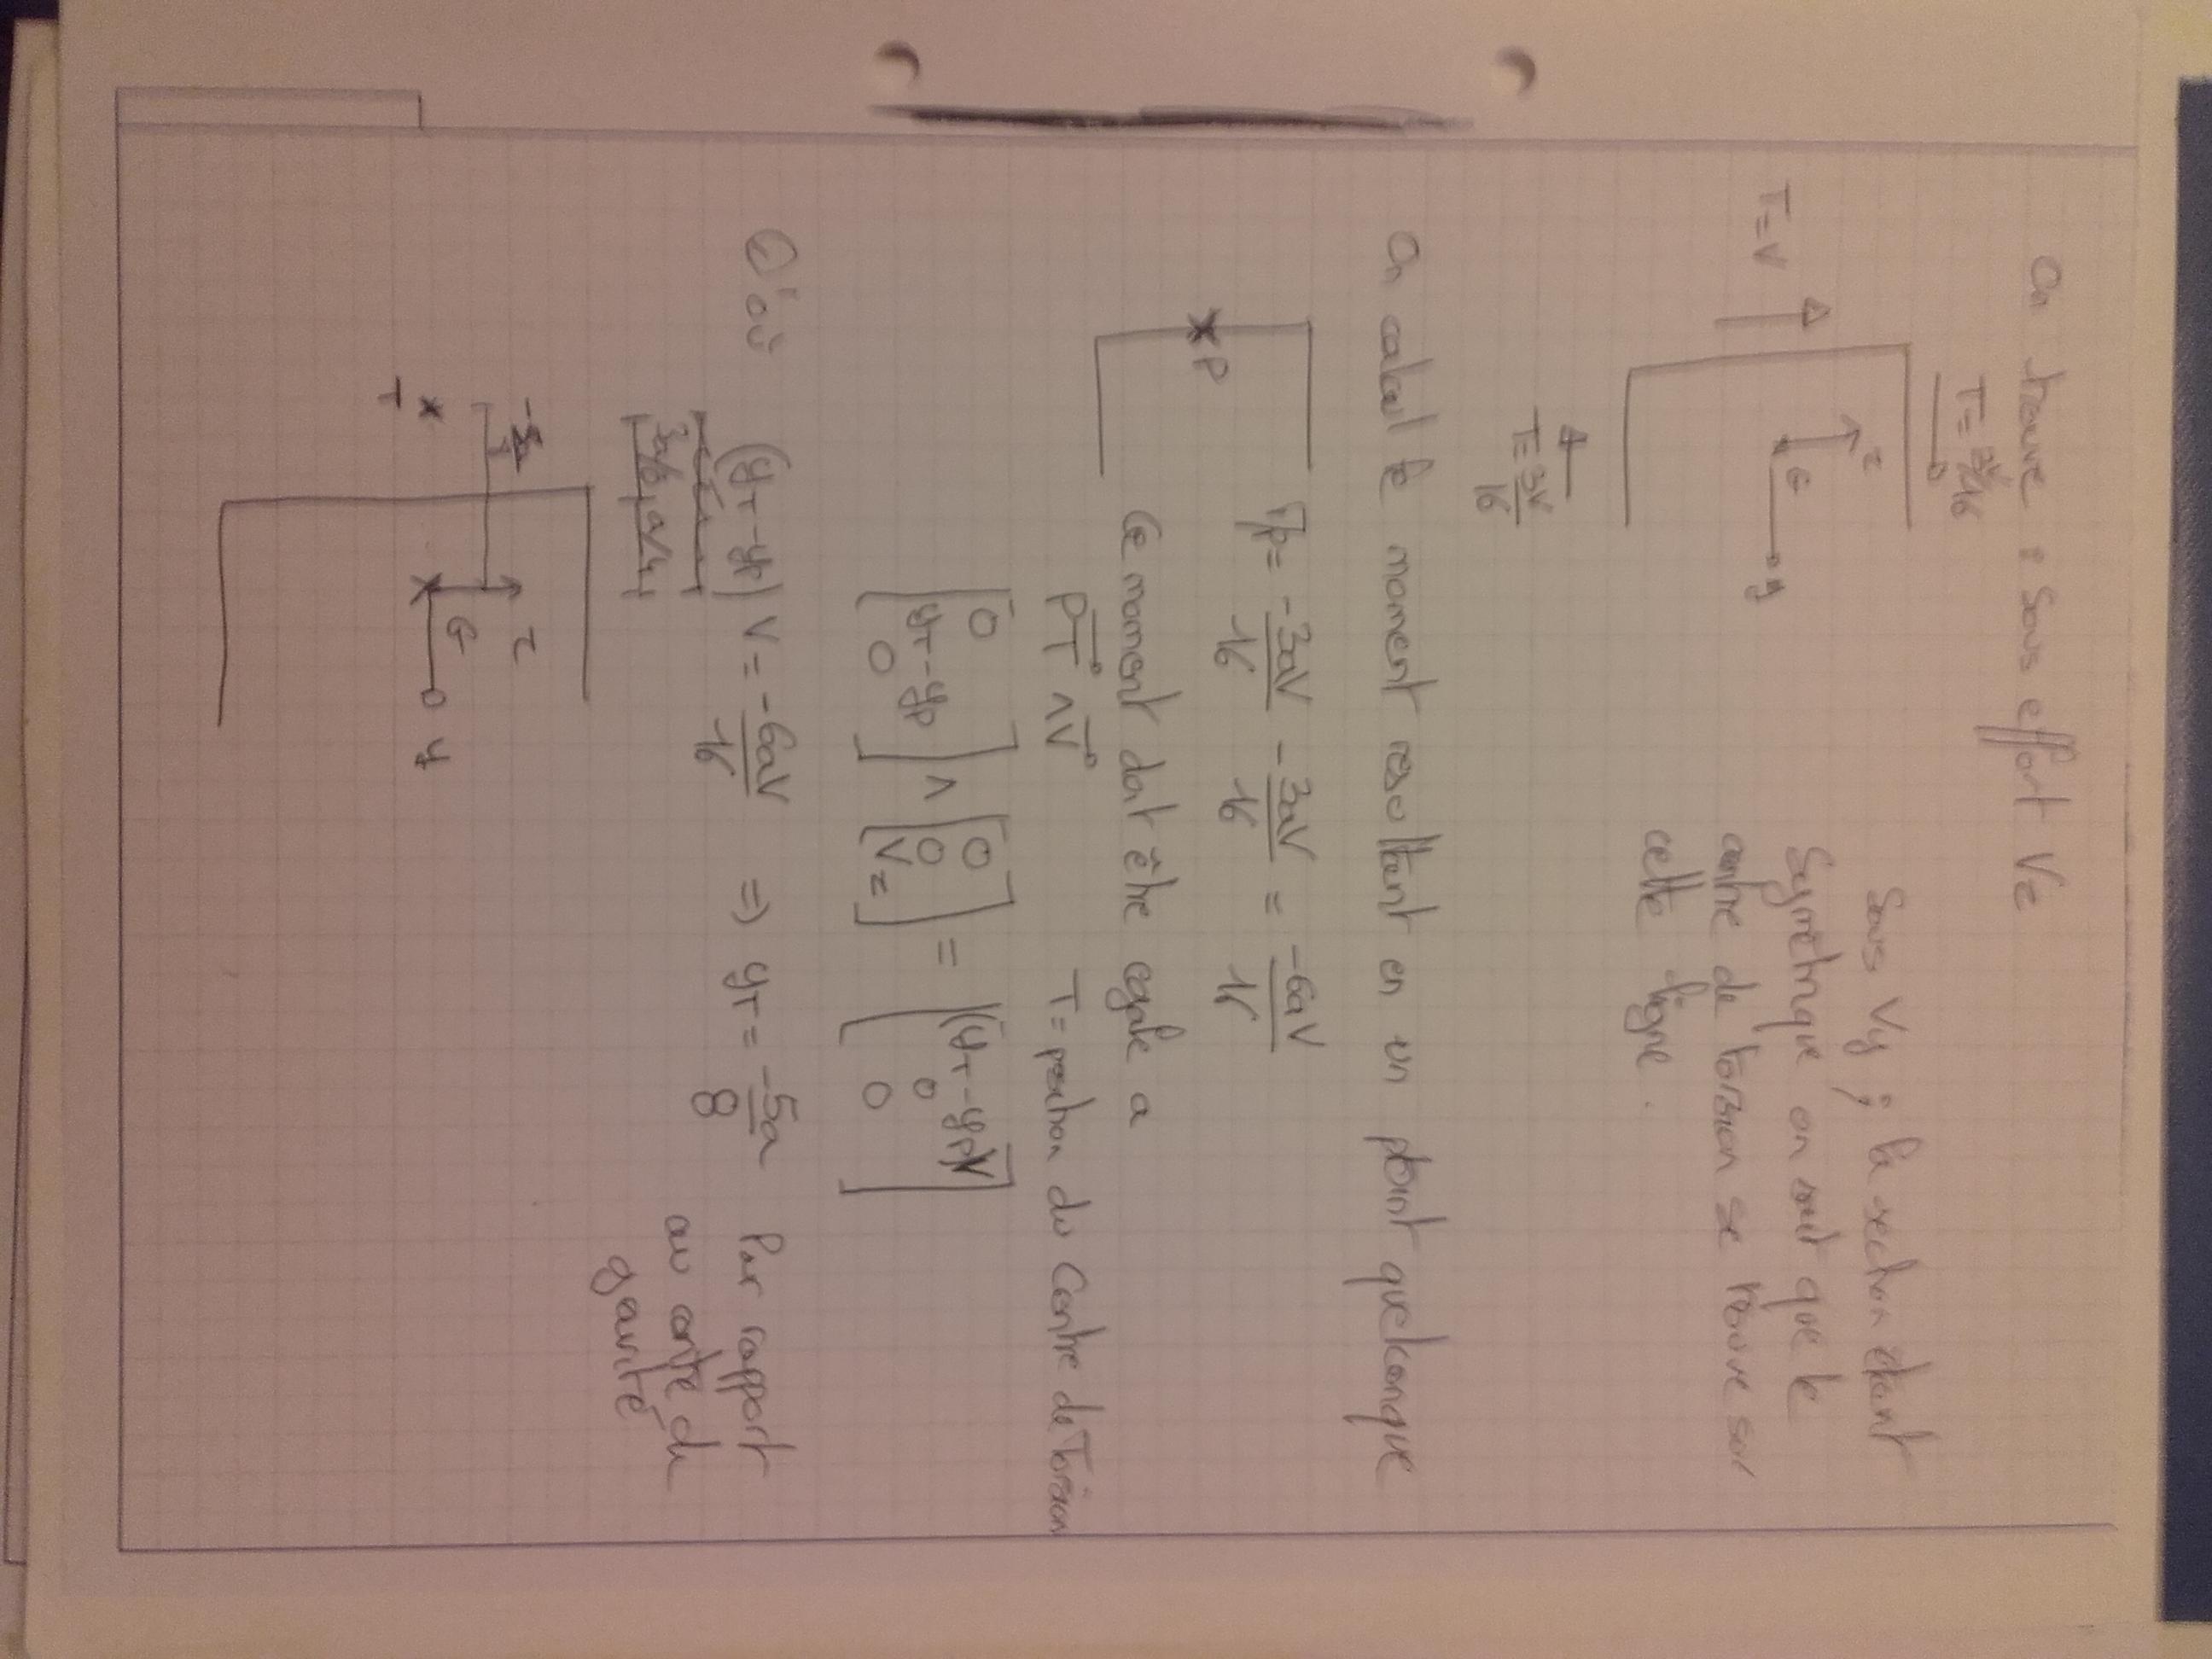 On trouve : Sous effort Vz
T = 3V/16
z
T = V
G
y
T = 3V/16
Sous Vy ; la section étant
Symétrique on sait que le
centre de torsion se trouve sur
cette ligne.
On calcul le moment resultant en un point quelconque
P
Mp = -3aV/16 - 3aV/16 = -6aV/16
Ce moment doit être egale a
PT ∧ V T = position du Centre de Torsion
[0 yT-yp 0] ∧ [0 0 Vz] = [(yT-yp)V 0 0]
D'où (yT-yp) V = -6aV/16 => yT = -5a/8 Par rapport
au centre de
gravité
3a/8 a/4
z
G
y
T